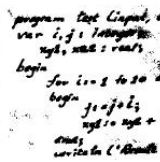 program test (input, o
var i, j : integer;
xyz, xxz : real;
begin
for i := 1 to 20 d
begin
j := j + i;
xyz := xyz +
end;
writeln ('